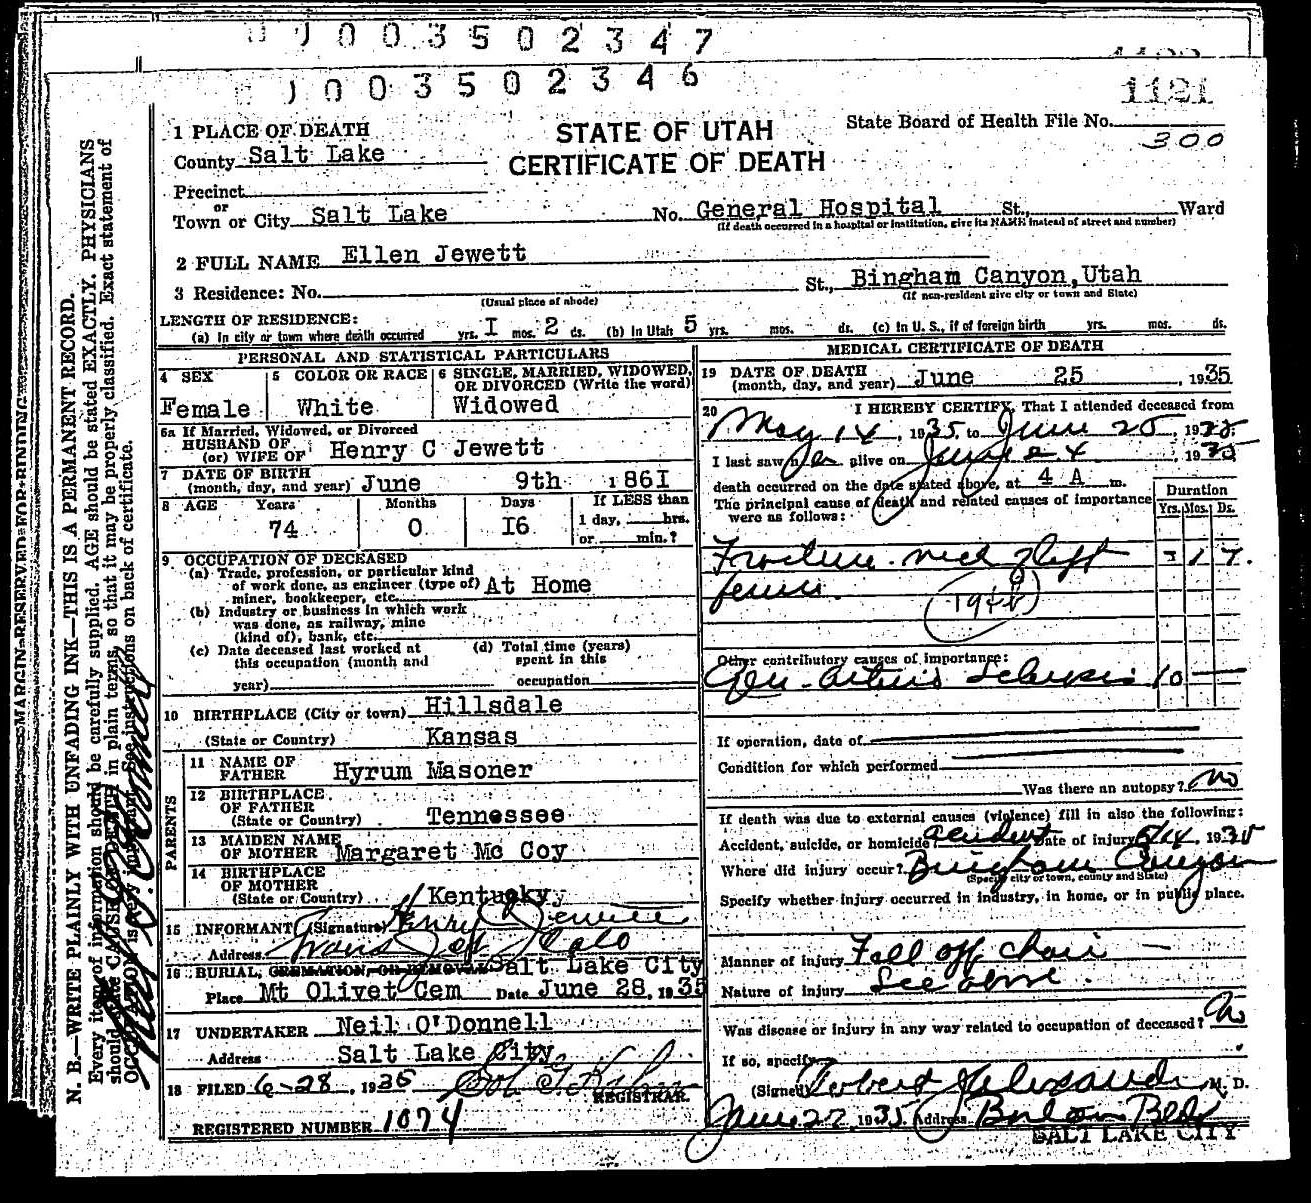 J003502347
J003502346
1121
1 PLACE OF DEATH
STATE OF UTAH
CERTIFICATE OF DEATH
State Board of Health File No. 300
County Salt Lake
Precinct
or
Town or City Salt Lake No. General Hospital St., Ward
(If death occurred in a hospital or institution, give its NAME instead of street and number)
2 FULL NAME Ellen Jewett
3 Residence: No. St., Bingham Canyon,Utah
(Usual place of abode) (If non-resident give city or town and State)
LENGTH OF RESIDENCE:
(a) In city or town where death occurred yrs. I mos. 2 ds. (b) In Utah 5 yrs. mos. ds. (c) In U. S., if of foreign birth yrs. mos. ds.
PERSONAL AND STATISTICAL PARTICULARS
4 SEX
Female
5 COLOR OR RACE
White
6 SINGLE, MARRIED, WIDOWED,
OR DIVORCED (Write the word)
Widowed
6a If Married, Widowed, or Divorced
HUSBAND OF
(or) WIFE OF Henry C Jewett
7 DATE OF BIRTH
(month, day, and year) June 9th 1861
8 AGE Years Months Days If LESS than
74 0 I6 1 day, hrs.
or min.?
9 OCCUPATION OF DECEASED
(a) Trade, profession, or particular kind
of work done, as engineer (type of) At Home
miner, bookkeeper, etc.
(b) Industry or business in which work
was done, as railway, mine
(kind of), bank, etc.
(c) Date deceased last worked at (d) Total time (years)
this occupation (month and spent in this
year) occupation
10 BIRTHPLACE (City or town) Hillsdale
(State or Country) Kansas
PARENTS
11 NAME OF
FATHER Hyrum Masoner
12 BIRTHPLACE
OF FATHER
(State or Country) Tennessee
13 MAIDEN NAME
OF MOTHER Margaret Mc Coy
14 BIRTHPLACE
OF MOTHER
(State or Country) Kentucky
15 INFORMANT (Signature) Henry Jewett
Address Idaho
16 BURIAL, CREMATION, OR REMOVAL Salt Lake City
Place Mt Olivet Cem Date June 28, 1935
17 UNDERTAKER Neil O'Donnell
Address Salt Lake City
18 FILED 6-28, 1935
REGISTRAR.
REGISTERED NUMBER 1074
MEDICAL CERTIFICATE OF DEATH
19 DATE OF DEATH
(month, day, and year) June 25, 1935
20 I HEREBY CERTIFY, That I attended deceased from
May 14, 1935, to June 25, 1935
I last saw her alive on June 24, 1935
death occurred on the date stated above, at 4 A m.
The principal cause of death and related causes of importance
were as follows:
Duration
Yrs. Mos. Ds.
Fracture neck of left 1 7.
femur.
Other contributory causes of importance:
Gen. arterio Sclerosis 10
If operation, date of
Condition for which performed
Was there an autopsy? no
If death was due to external causes (violence) fill in also the following:
Accident, suicide, or homicide? accident Date of injury 5/14 1935
Where did injury occur? Bingham Canyon
(Specify city or town, county and State)
Specify whether injury occurred in industry, in home, or in public place.
Manner of injury Fell off chair
Nature of injury See above.
Was disease or injury in any way related to occupation of deceased? No
If so, specify
(Signed) M. D.
June 27, 1935 Address Boston Bldg
SALT LAKE CITY
MARGIN RESERVED FOR BINDING
N. B.—WRITE PLAINLY WITH UNFADING INK—THIS IS A PERMANENT RECORD.
Every item of information should be carefully supplied. AGE should be stated EXACTLY. PHYSICIANS
should state CAUSE OF DEATH in plain terms, so that it may be properly classified. Exact statement of
OCCUPATION is very important. See instructions on back of certificate.